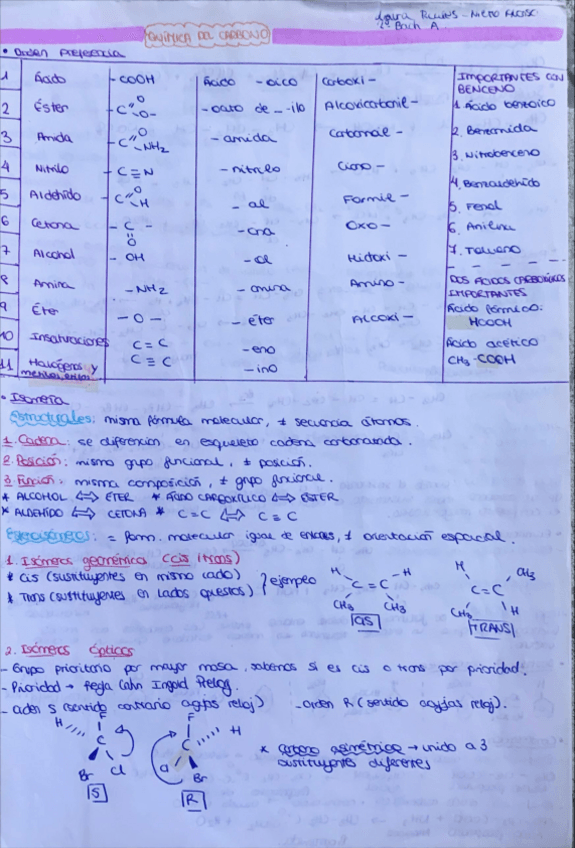 QUÍMICA DEL CARBONO
2º Bach A.
• Orden Preferencia
1 Ácido -COOH Ácido -oico Carboxi-
2 Éster -C O -O- -oato de -ilo Alcoxicarbonil-
3 Amida -C O NH2 -amida Carbamoil-
4 Nitrilo -C≡N -nitrilo Ciano-
5 Aldehído -C O H -al Formil-
6 Cetona -C- O -ona Oxo-
7 Alcohol -OH -ol Hidroxi-
8 Amina -NH2 -amina Amino-
9 Éter -O- -éter Alcoxi-
10 Insaturaciones C=C C≡C -eno
11 Halógenos y -ino
IMPORTANTES CON
BENCENO
1. Ácido benzoico
2. Benzamida
3. Nitrobenceno
4. Benzaldehído
5. Fenol
6. Anilina
7. Tolueno
DOS ÁCIDOS CARBOXÍLICOS
IMPORTANTES
Ácido fórmico:
HCOOH
Ácido acético
CH3-COOH
• Isomería
Estructurales: misma fórmula molecular, ≠ secuencia átomos.
1. Cadena: se diferencian en esqueleto cadena carbonada.
2. Posición: mismo grupo funcional, ≠ posición.
3. Función: misma composición, ≠ grupo funcional.
* ALCOHOL ⟺ ÉTER * ÁCIDO CARBOXÍLICO ⟺ ÉSTER
* ALDEHÍDO ⟺ CETONA * C=C ⟺ C≡C
Estereoisómeros: = Form. molecular igual de enlaces, ≠ orientación espacial.
1. Isómeros geométricos (cis/trans)
* Cis (sustituyentes en mismo lado)
* Trans (sustituyentes en lados opuestos) } ejemplo
H H C=C CH3 CH3
CIS
H CH3 C=C CH3 H
TRANS
2. Isómeros Ópticos
- Grupo prioritario por mayor masa, sabemos si es cis o trans por prioridad.
- Prioridad → Regla Cahn Ingold Prelog.
- orden S (sentido contrario agujas reloj) - orden R (sentido agujas reloj).
F H C Br Cl
S
F H C Cl Br
R
* Carbono asimétrico → unido a 3
sustituyentes diferentes